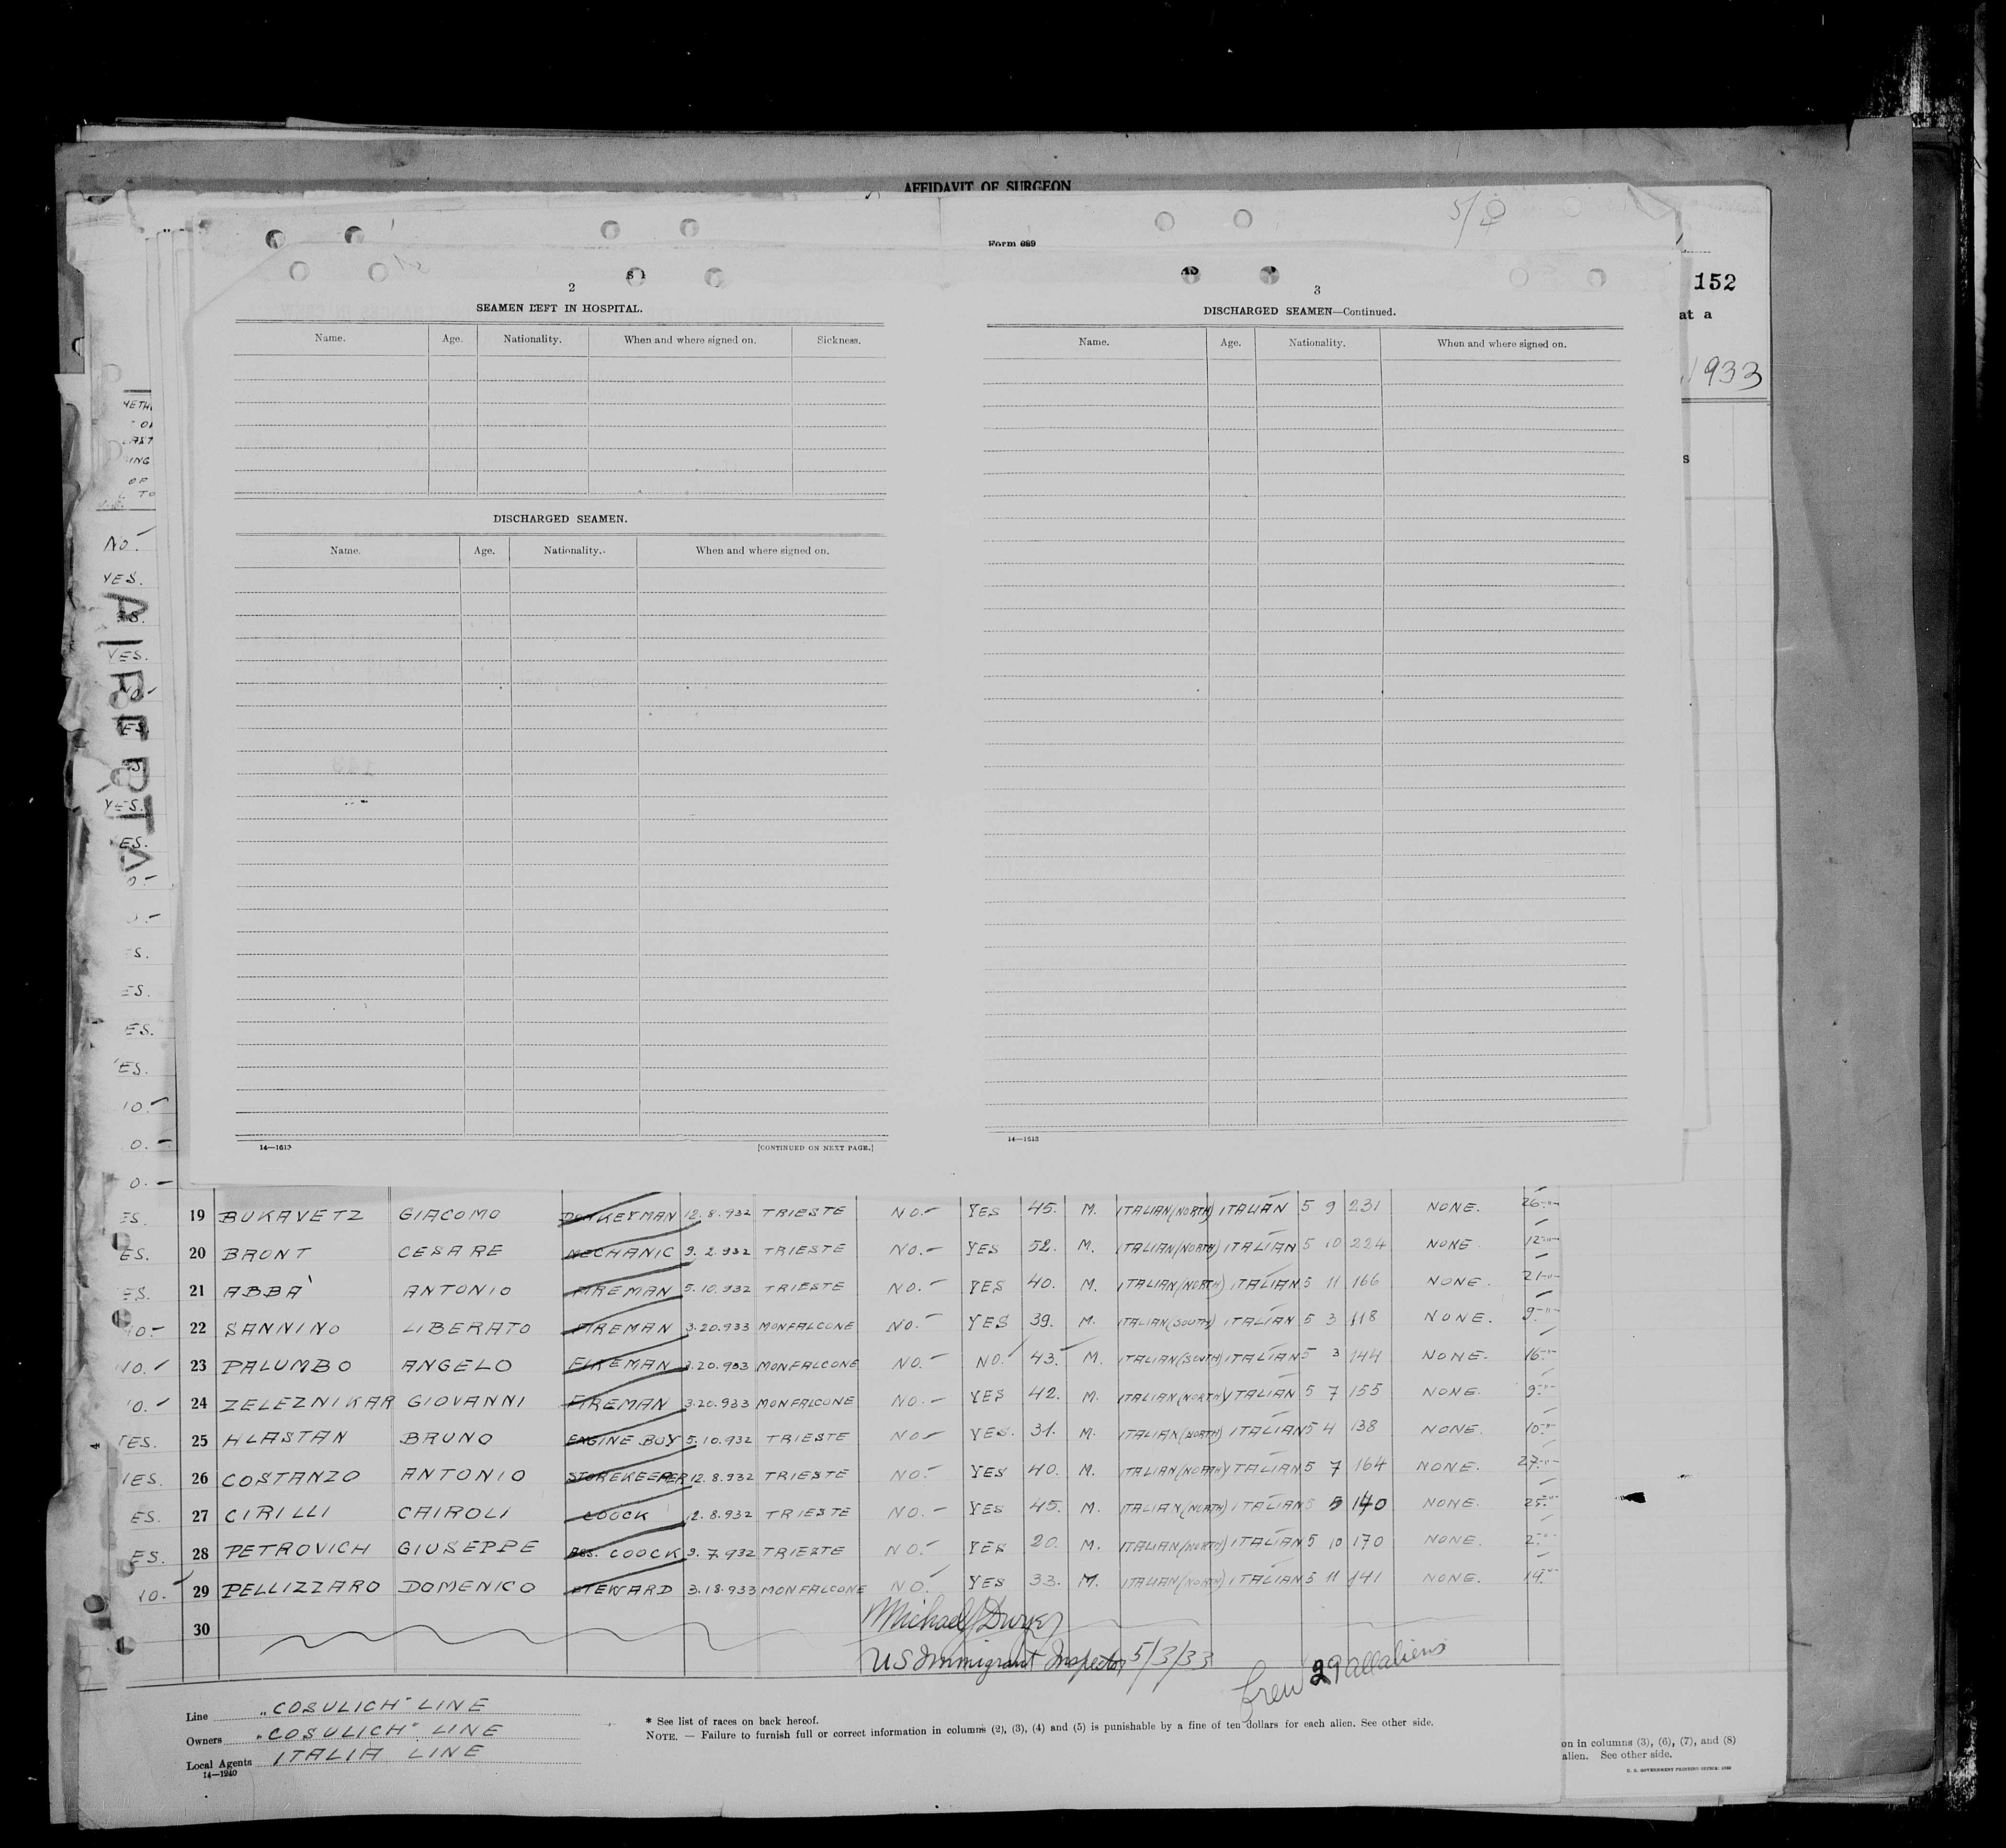 AFFIDAVIT OF SURGEON
Form 689
152
at a
1933
2
SEAMEN LEFT IN HOSPITAL.
Name. Age. Nationality. When and where signed on. Sickness.
DISCHARGED SEAMEN.
Name. Age. Nationality. When and where signed on.
14—1613 [CONTINUED ON NEXT PAGE.]
3
DISCHARGED SEAMEN—Continued.
Name. Age. Nationality. When and where signed on.
14—1613
NO.
YES.
YES.
YES.
ES.
ES.
ES.
ES.
ES.
19 BUKAVETZ GIACOMO DONKEYMAN 12.8.932 TRIESTE NO.- YES 45. M. ITALIAN(NORTH) ITALIAN 5 9 231 NONE. 26-"-
20 BRONT CESARE MECHANIC 9.2.932 TRIESTE NO.- YES 52. M. ITALIAN(NORTH) ITALIAN 5 10 224 NONE 12-"-
21 ABBA' ANTONIO FIREMAN 5.10.932 TRIESTE NO.- YES 40. M. ITALIAN(NORTH) ITALIAN 5 11 166 NONE. 21-"-
22 SANNINO LIBERATO FIREMAN 3.20.933 MONFALCONE NO.- YES 39. M. ITALIAN(SOUTH) ITALIAN 5 3 118 NONE. 9-"-
23 PALUMBO ANGELO FIREMAN 3.20.933 MONFALCONE NO.- NO. 43. M. ITALIAN(SOUTH) ITALIAN 5 3 144 NONE. 16-"-
24 ZELEZNIKAR GIOVANNI FIREMAN 3.20.933 MONFALCONE NO.- YES 42. M. ITALIAN(NORTH) ITALIAN 5 7 155 NONE. 9-"-
25 HLASTAN BRUNO ENGINE BOY 5.10.932 TRIESTE NO- YES. 31. M. ITALIAN(NORTH) ITALIAN 5 4 138 NONE. 10-"-
26 COSTANZO ANTONIO STOREKEEPER 12.8.932 TRIESTE NO.- YES 40. M. ITALIAN(NORTH) ITALIAN 5 7 164 NONE. 27-"-
27 CIRILLI CAIROLI COOCK 12.8.932 TRIESTE NO.- YES 45. M. ITALIAN(NORTH) ITALIAN 5 5 140 NONE. 25-"-
28 PETROVICH GIUSEPPE ASS. COOCK 9.7.932 TRIESTE NO.- YES 20. M. ITALIAN(NORTH) ITALIAN 5 10 170 NONE. 2-"-
29 PELLIZZARO DOMENICO STEWARD 3.18.933 MONFALCONE NO. YES 33. M. ITALIAN(NORTH) ITALIAN 5 11 141 NONE. 14-"-
30
Michael J Dwyer
US Immigrant Inspector 5/3/33
Crew 29 all aliens
Line „COSULICH" LINE
Owners „COSULICH" LINE
Local Agents ITALIA LINE
14—1240
* See list of races on back hereof.
NOTE. — Failure to furnish full or correct information in columns (2), (3), (4) and (5) is punishable by a fine of ten dollars for each alien. See other side.
on in columns (3), (6), (7), and (8)
alien. See other side.
U. S. GOVERNMENT PRINTING OFFICE: 1930